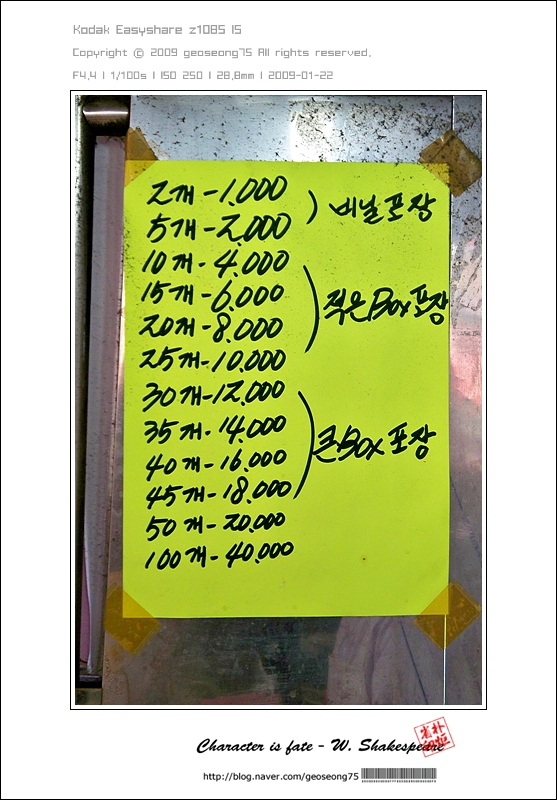 Kodak Easyshare z1085 IS
Copyright © 2009 geoseong75 All rights reserved.
F4.4 | 1/100s | ISO 250 | 28.8mm | 2009-01-22
2개-1.000
5개-2.000
비닐포장
10개-4.000
15개-6.000
적은Box포장
20개-8.000
25개-10.000
30개-12.000
35개-14.000
큰Box포장
40개-16.000
45개-18.000
50개-20.000
100개-40.000
Character is fate - W. Shakespeare
http://blog.naver.com/geoseong75